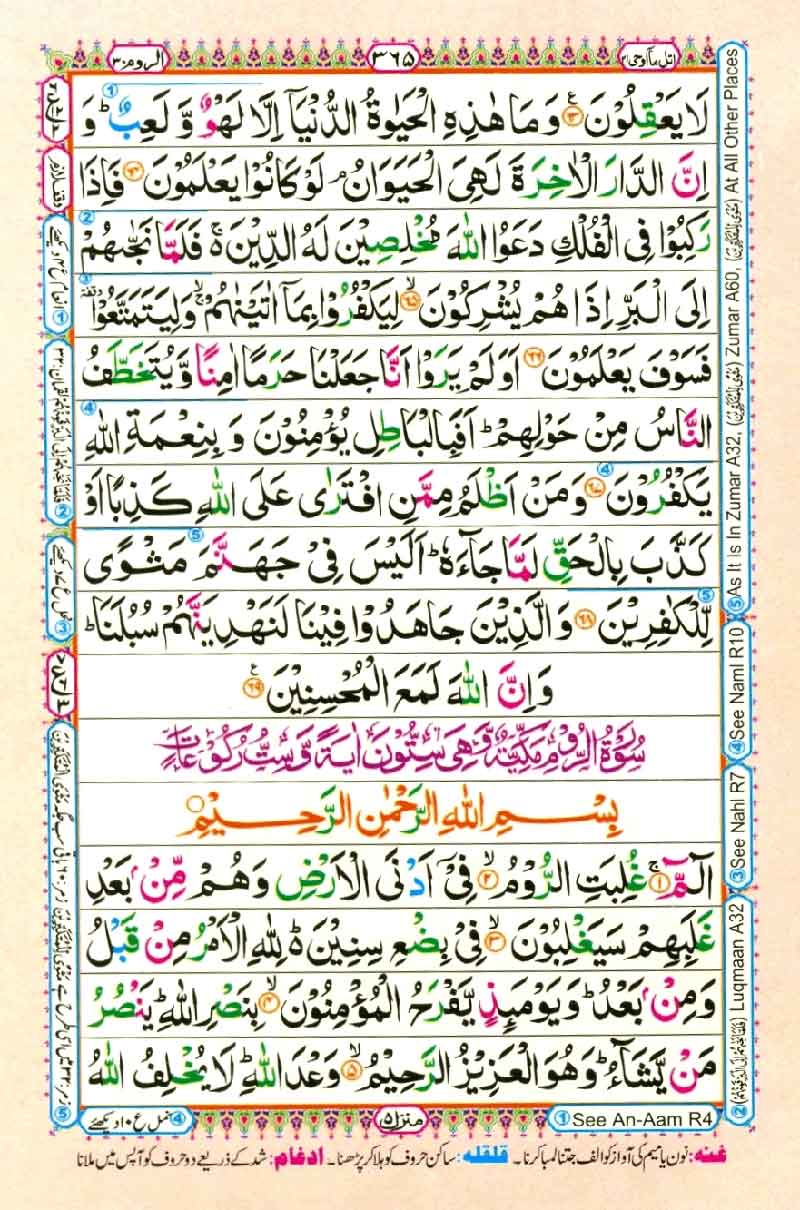 اتل ما اوحی ۲۱
۳۶۵
الروم ۳۰
لَا یَعْقِلُوْنَ ۝۶۳ وَمَا هٰذِهِ الْحَیٰوةُ الدُّنْیَاۤ اِلَّا لَهْوٌ وَّ لَعِبٌ ؕ وَ
اِنَّ الدَّارَ الْاٰخِرَةَ لَهِیَ الْحَیَوَانُ ۘ لَوْ كَانُوْا یَعْلَمُوْنَ ۝۶۴ فَاِذَا
رَكِبُوْا فِی الْفُلْكِ دَعَوُا اللّٰهَ مُخْلِصِیْنَ لَهُ الدِّیْنَ ۚ۬ فَلَمَّا نَجّٰىهُمْ
اِلَی الْبَرِّ اِذَا هُمْ یُشْرِكُوْنَ ۝۶۵ۙ لِیَكْفُرُوْا بِمَاۤ اٰتَیْنٰهُمْ ۙۚ وَلِیَتَمَتَّعُوْا ۥ وقفة
فَسَوْفَ یَعْلَمُوْنَ ۝۶۶ اَوَلَمْ یَرَوْا اَنَّا جَعَلْنَا حَرَمًا اٰمِنًا وَّ یُتَخَطَّفُ
النَّاسُ مِنْ حَوْلِهِمْ ؕ اَفَبِالْبَاطِلِ یُؤْمِنُوْنَ وَ بِنِعْمَةِ اللّٰهِ
یَكْفُرُوْنَ ۝۶۷ وَمَنْ اَظْلَمُ مِمَّنِ افْتَرٰی عَلَی اللّٰهِ كَذِبًا اَوْ
كَذَّبَ بِالْحَقِّ لَمَّا جَآءَهٗ ؕ اَلَیْسَ فِیْ جَهَنَّمَ مَثْوًی
لِّلْكٰفِرِیْنَ ۝۶۸ وَالَّذِیْنَ جَاهَدُوْا فِیْنَا لَنَهْدِیَنَّهُمْ سُبُلَنَا ؕ
وَاِنَّ اللّٰهَ لَمَعَ الْمُحْسِنِیْنَ ۝۶۹
سُوْرَةُ الرُّوْمِ مَكِّیَّةٌ وَّهِیَ سِتُّوْنَ اٰیَةً وَّسِتُّ رُكُوْعَاتٍ
بِسْمِ اللّٰهِ الرَّحْمٰنِ الرَّحِیْمِ
الٓمّٓ ۝۱ۚ غُلِبَتِ الرُّوْمُ ۝۲ۙ فِیْۤ اَدْنَی الْاَرْضِ وَهُمْ مِّنْۢ بَعْدِ
غَلَبِهِمْ سَیَغْلِبُوْنَ ۝۳ۙ فِیْ بِضْعِ سِنِیْنَ ؕ۬ لِلّٰهِ الْاَمْرُ مِنْ قَبْلُ
وَمِنْۢ بَعْدُ ؕ وَیَوْمَىِٕذٍ یَّفْرَحُ الْمُؤْمِنُوْنَ ۝۴ۙ بِنَصْرِ اللّٰهِ ؕ یَنْصُرُ
مَنْ یَّشَآءُ ؕ وَهُوَ الْعَزِیْزُ الرَّحِیْمُ ۝۵ۙ وَعْدَ اللّٰهِ ؕ لَا یُخْلِفُ اللّٰهُ
⑤ As It Is In Zumar A32, (مَثْوًی لِّلْمُتَكَبِّرِیْنَ) Zumar A60, (مَثْوًی لِّلْمُتَكَبِّرِیْنَ) At All Other Places
④ See Naml R10
③ See Nahl R7
② Luqmaan A32
① See An-Aam R4
منزل ۵
④ نمل ع ۱۰ دیکھئے
غنہ: نون یا میم کی آواز کو الف جتنا لمبا کرنا۔ قلقلہ: ساکن حروف کو ہلا کر پڑھنا۔ ادغام: شد کے ذریعے دو حروف کو آپس میں ملانا